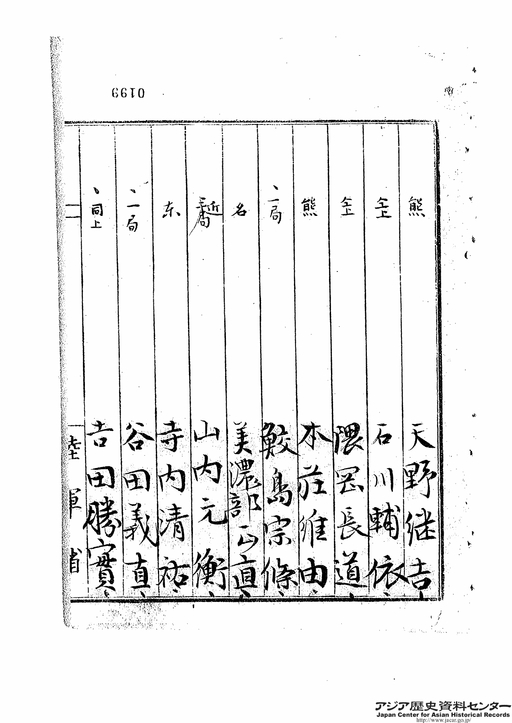 0199
熊
天野継吉
仝上
石川輔依
仝上
隈岡長道
熊
本荘維由
、一局
鮫島宗條
名
美濃部正直
近衛局
山内元衡
东
寺内清祐
、一局
谷田義直
、同上
吉田勝實
二
陸軍省
アジア歴史資料センター
Japan Center for Asian Historical Records
http://www.jacar.go.jp/